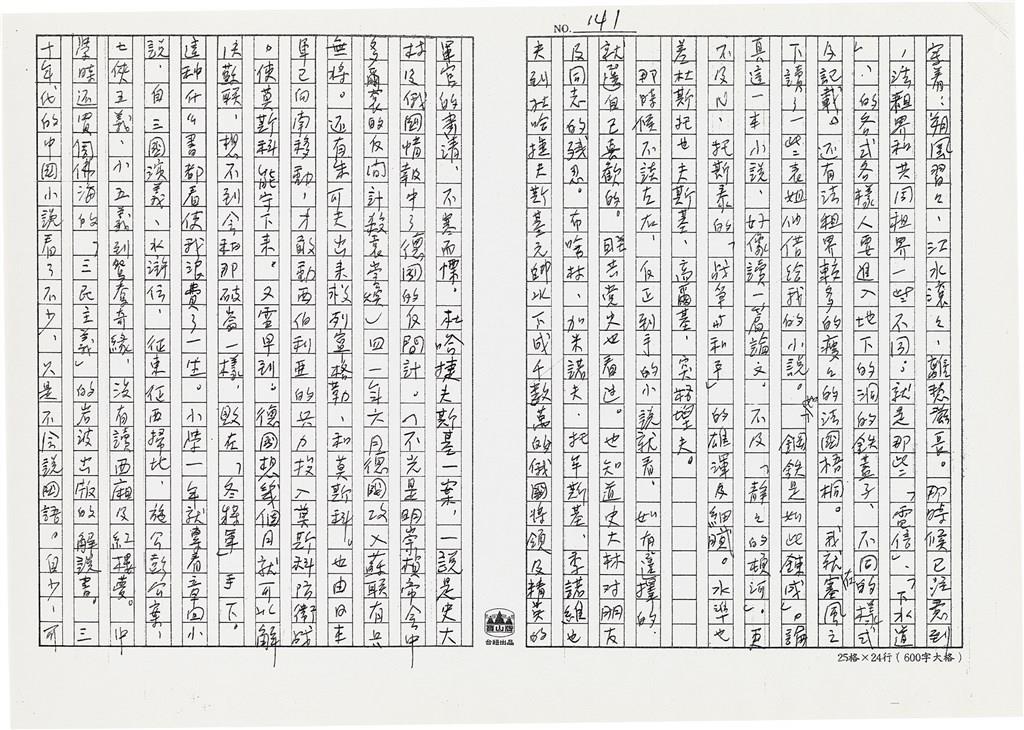 NO. 141
寒着：朔風習々、江水滾々、離愁滋長。那時候已注意到
，法租界和共同租界一些不同：就是那些「電信」、「下水道
」、的各式各樣人要進入地下的洞的鉄蓋子、不同的樣式
及記載。还有法租界較多的瘦々的法國梧桐。我就在寒風之
下讀了一些表姐他借給我的小說。「鋼鉄是如此錬成」。論
真這一本小說、好像讀一篇論文。不及「靜々的頓河」。更
不及ㄟ、托斯泰的「战争與和平」的雄渾及細膩。水準也
差杜斯托也夫斯基、高爾基、突格望夫。
那時候不談左右、反正到手的小說就看、如有選擇的，
就選自己喜歡的。联共党史也看过。也知道史大林对朋友
及同志的残忍。布哈林、加米諾夫、托年斯基、季諾維也
夫到杜哈捷夫斯基元帥以下成千數萬的俄國將領及精英的
軍官的肅清、不寒而慄。杜哈捷夫斯基一案，一說是史大
林及俄國情報中了德國的反間計。（不光是明崇禎帝会中
多爾袞的反间計殺袁崇煥）四一年六月德國攻入蘇联有兵
無將。还有朱可夫出来救列寧格勒、和莫斯科。也由日本
軍已向南移動，才敢動西伯利亜的兵力投入莫斯科防衛战
。使莫斯科能守下来。又雪早到。德國想幾個月就可以解
決蘇联、想不到会和那破崙一樣，敗在「冬将軍」手下。
這种什么書都看使我浪費了一生。小学一年就學看章回小
說，自三國演義、水滸伝、征東征西掃北、施公彭公案、
七俠五義、小五義到鴛鴦奇緣、没有讀西廂及紅樓夢。中
學時还買周佛海的「三民主義」的岩波出版的解說書。三
十年代的中國小說看了不少，只是不会說國語。自少，可
寶山牌
台紐出品
25格×24行（600字大格）